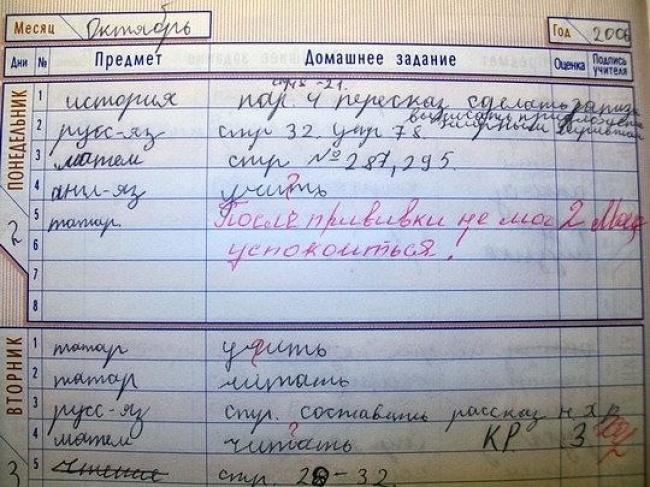 Месяц Октябрь Год 2006
Дни № Предмет Домашнее задание Оценка Подпись учителя
стр 18-21.
ПОНЕДЕЛЬНИК 2
1 история пар. 4 пересказ сделать
2 русс-яз стр 32. упр 78.
3 матем стр № 287, 295.
4 анл-яз учить
?
5 татар. После прививки не мог 2
6 успокоиться!
7
8
ВТОРНИК 3
1 татар учить
?
2 татар читать
3 русс-яз стр. составить рассказ
4 матем читать КР 3
?
5 чтение стр. 28-32.